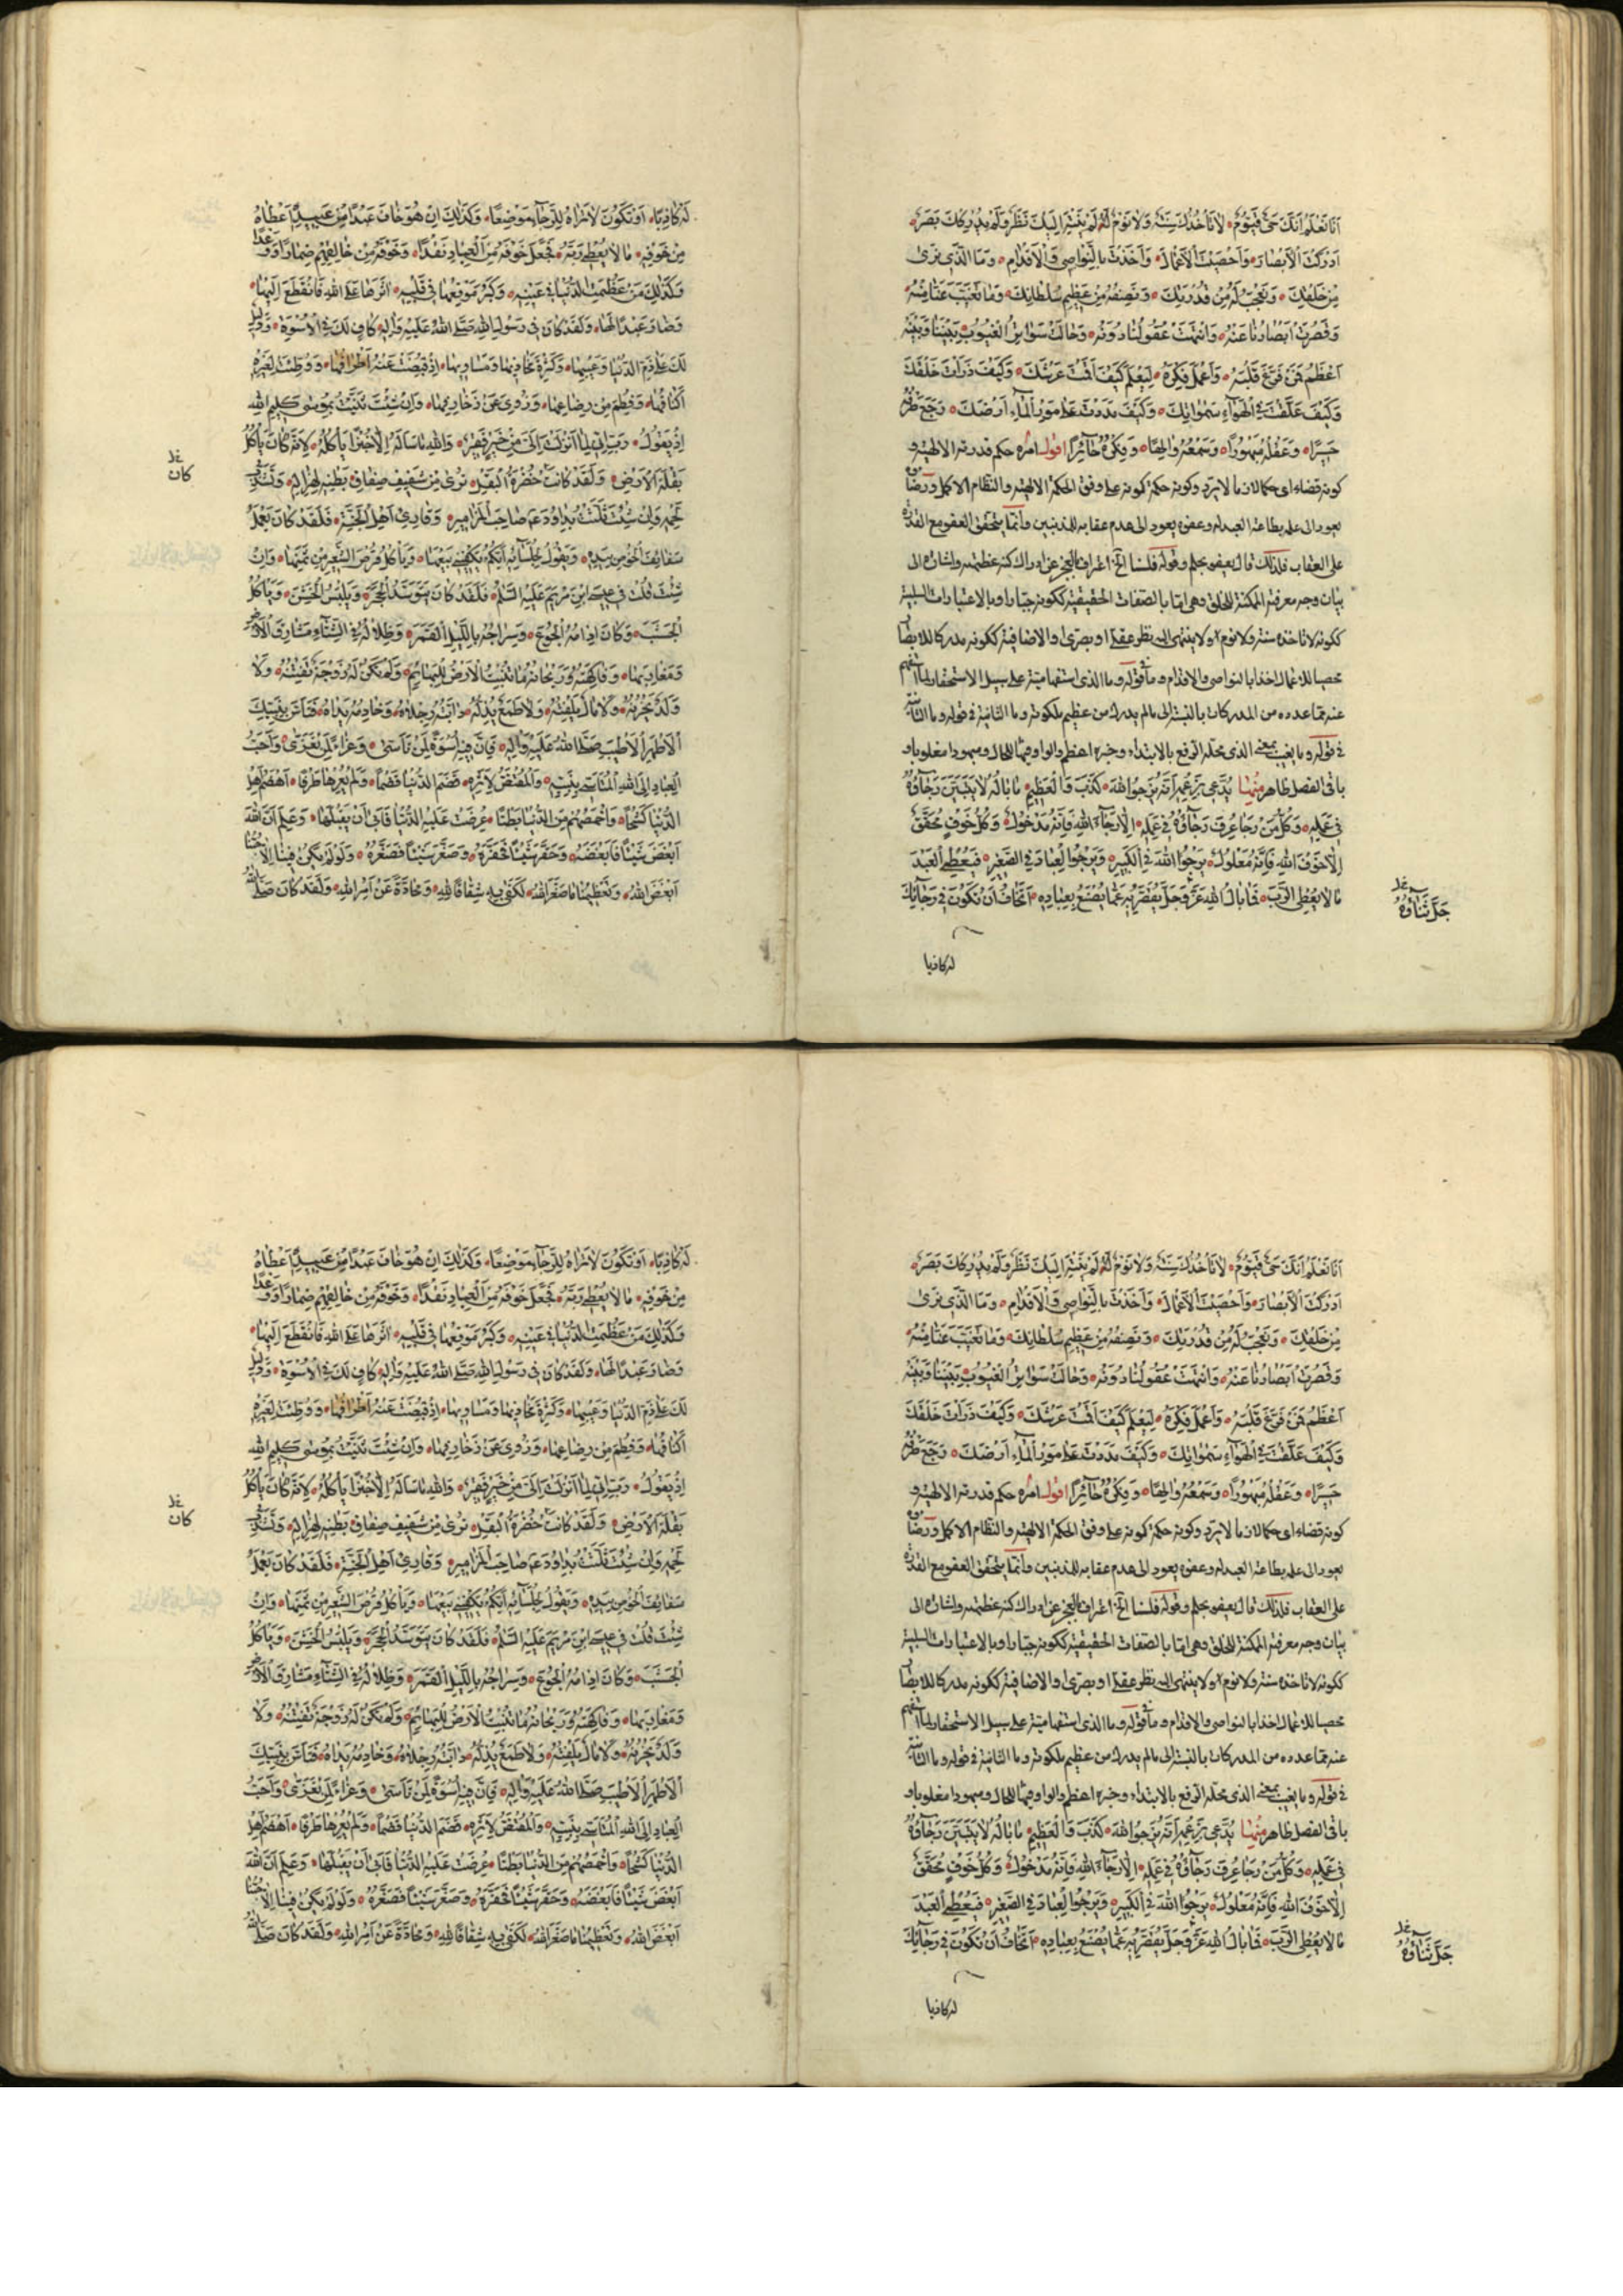 انا نعلم انك حي قيوم لا تاخذك سنة ولا نوم لم ينته اليك نظر ولم يدركك بصر
ادركت الابصار واحصيت الاعمال واخذت بالنواصي والاقدام وما الذي نرى
من خلقك ونعجب له من قدرتك ونصفه من عظيم سلطانك وما تغيب عنا منه
وقصرت ابصارنا عنه وانتهت عقولنا دونه وحالت سواتر الغيوب بيننا وبينه
اعظم فمن فرغ قلبه واعمل فكره ليعلم كيف اقمت عرشك وكيف ذرات خلقك
وكيف علقت في الهواء سمواتك وكيف مددت على مور الماء ارضك رجع طرفه
حسيرا وعقله مبهورا وسمعه والها وفكره حائرا اقول امره حكم قدرته الالهية و
كونه قضاء اى حكما لازما لا يرد وكونه حكمة كونه على وفق الحكمة الالهية والنظام الاكمل ورضاه
يعود الى علمه بطاعة العبد له وعفوه يعود الى عدم عقابه للمذنبين وانما يتحقق العفو مع القدرة
على العقاب فلذلك قال يعفو بحلم وقوله فلسنا الخ اعتراف بالعجز عن ادراك كنه عظمته واشارة الى
بيان وجه معرفته الممكنة للخلق وهى اما بالصفات الحقيقية ككونه حيا او بالاعتبارات السلبية
ككونه لا تاخذه سنة ولا نوم ولا ينتهى اليه نظر عقلى او بصرى او الاضافية ككونه مدركا للابصار
محصيا للاعمال اخذا بالنواصي والاقدام وما في قوله وما الذى استفهامية على سبيل الاستحقار لما استفهم
عنه مما عدده من المدركات بالنسبة الى ما لم يدرك من عظيم ملكوته وما الثانية في قوله وما الثانية
في قوله وما يغيب بمعنى الذى محله الرفع بالابتداء وخبره اعظم والواو فيها للحال ومبهورا مغلوبا و
باقى الفصل ظاهر منها يدعي بزعمه انه يرجو الله كذب والعظيم ما باله لا يتبين رجاؤه
في عمله وكل من رجا عرف رجاؤه في عمله الا رجاء الله فانه مدخول وكل خوف محقق
الا خوف الله فانه معلول يرجوا الله في الكبير ويرجوا العباد في الصغير فيعطي العبد
ما لا يعطي الرب فما بال الله عز وجل يقصر به عما يصنع بعباده اتخاف ان تكون في رجائك
جل ثناؤه
له كاذبا
له كاذبا او تكون لا تراه للرجاء موضعا وكذلك ان هو خاف عبدا من عبيده اعطاه
من خوفه ما لا يعطي ربه فجعل خوفه من العباد نقدا وخوفه من خالقهم ضمارا ووعدا
وكذلك من عظمت الدنيا في عينه وكبر موقعها في قلبه اثرها على الله فانقطع اليها
وصار عبدا لها ولقد كان في رسول الله صلى الله عليه واله كاف لك في الاسوة ودليل
لك على ذم الدنيا وعيبها وكثرة مخازيها ومساويها اذ قبضت عنه اطرافها ووطئت لغيره
اكنافها وفطم من رضاعها وزوي عن زخارفها وان شئت ثنيت بموسى كليم الله
اذ يقول رب اني لما انزلت الي من خير فقير والله ما ساله الا خبزا ياكله لانه كان ياكل
كان
بقلة الارض ولقد كانت خضرة البقل ترى من شفيف صفاق بطنه لهزاله وتشذب
لحمه وان شئت ثلثت بداود عم صاحب المزامير وقارئ اهل الجنة فلقد كان يعمل
سفائف الخوص بيده ويقول لجلسائه ايكم يكفيني بيعها وياكل قرص الشعير من ثمنها وان
شئت قلت في عيسى ابن مريم عليه السلم فلقد كان يتوسد الحجر ويلبس الخشن وياكل
الجشب وكان ادامه الجوع وسراجه بالليل القمر وظلاله في الشتاء مشارق الارض
ومغاربها وفاكهته وريحانه ما تنبت الارض للبهائم ولم تكن له زوجة تفتنه ولا
ولد يحزنه ولا مال يلفته ولا طمع يذله دابته رجلاه وخادمه يداه فتاس بنبيك
الاطهر الاطيب صلى الله عليه واله فان فيه اسوة لمن تاسى وعزاء لمن تعزى واحب
العباد الى الله المتاسي بنبيه والمقتص لاثره قضم الدنيا قضما ولم يعرها طرفا اهضم اهل
الدنيا كشحا واخمصهم من الدنيا بطنا عرضت عليه الدنيا فابى ان يقبلها وعلم ان الله
ابغض شيئا فابغضه وحقر شيئا فحقره وصغر شيئا فصغره ولو لم يكن فينا الا حبنا
ما ابغض الله وتعظيمنا ما صغر الله لكفى به شقاقا لله ومحادة عن امر الله ولقد كان صلى الله
انا نعلم انك حي قيوم لا تاخذك سنة ولا نوم لم ينته اليك نظر ولم يدركك بصر
ادركت الابصار واحصيت الاعمال واخذت بالنواصي والاقدام وما الذي نرى
من خلقك ونعجب له من قدرتك ونصفه من عظيم سلطانك وما تغيب عنا منه
وقصرت ابصارنا عنه وانتهت عقولنا دونه وحالت سواتر الغيوب بيننا وبينه
اعظم فمن فرغ قلبه واعمل فكره ليعلم كيف اقمت عرشك وكيف ذرات خلقك
وكيف علقت في الهواء سمواتك وكيف مددت على مور الماء ارضك رجع طرفه
حسيرا وعقله مبهورا وسمعه والها وفكره حائرا اقول امره حكم قدرته الالهية و
كونه قضاء اى حكما لازما لا يرد وكونه حكمة كونه على وفق الحكمة الالهية والنظام الاكمل ورضاه
يعود الى علمه بطاعة العبد له وعفوه يعود الى عدم عقابه للمذنبين وانما يتحقق العفو مع القدرة
على العقاب فلذلك قال يعفو بحلم وقوله فلسنا الخ اعتراف بالعجز عن ادراك كنه عظمته واشارة الى
بيان وجه معرفته الممكنة للخلق وهى اما بالصفات الحقيقية ككونه حيا او بالاعتبارات السلبية
ككونه لا تاخذه سنة ولا نوم ولا ينتهى اليه نظر عقلى او بصرى او الاضافية ككونه مدركا للابصار
محصيا للاعمال اخذا بالنواصي والاقدام وما في قوله وما الذى استفهامية على سبيل الاستحقار لما استفهم
عنه مما عدده من المدركات بالنسبة الى ما لم يدرك من عظيم ملكوته وما الثانية في قوله وما الثانية
في قوله وما يغيب بمعنى الذى محله الرفع بالابتداء وخبره اعظم والواو فيها للحال ومبهورا مغلوبا و
باقى الفصل ظاهر منها يدعي بزعمه انه يرجو الله كذب والعظيم ما باله لا يتبين رجاؤه
في عمله وكل من رجا عرف رجاؤه في عمله الا رجاء الله فانه مدخول وكل خوف محقق
الا خوف الله فانه معلول يرجوا الله في الكبير ويرجوا العباد في الصغير فيعطي العبد
ما لا يعطي الرب فما بال الله عز وجل يقصر به عما يصنع بعباده اتخاف ان تكون في رجائك
جل ثناؤه
له كاذبا
له كاذبا او تكون لا تراه للرجاء موضعا وكذلك ان هو خاف عبدا من عبيده اعطاه
من خوفه ما لا يعطي ربه فجعل خوفه من العباد نقدا وخوفه من خالقهم ضمارا ووعدا
وكذلك من عظمت الدنيا في عينه وكبر موقعها في قلبه اثرها على الله فانقطع اليها
وصار عبدا لها ولقد كان في رسول الله صلى الله عليه واله كاف لك في الاسوة ودليل
لك على ذم الدنيا وعيبها وكثرة مخازيها ومساويها اذ قبضت عنه اطرافها ووطئت لغيره
اكنافها وفطم من رضاعها وزوي عن زخارفها وان شئت ثنيت بموسى كليم الله
اذ يقول رب اني لما انزلت الي من خير فقير والله ما ساله الا خبزا ياكله لانه كان ياكل
كان
بقلة الارض ولقد كانت خضرة البقل ترى من شفيف صفاق بطنه لهزاله وتشذب
لحمه وان شئت ثلثت بداود عم صاحب المزامير وقارئ اهل الجنة فلقد كان يعمل
سفائف الخوص بيده ويقول لجلسائه ايكم يكفيني بيعها وياكل قرص الشعير من ثمنها وان
شئت قلت في عيسى ابن مريم عليه السلم فلقد كان يتوسد الحجر ويلبس الخشن وياكل
الجشب وكان ادامه الجوع وسراجه بالليل القمر وظلاله في الشتاء مشارق الارض
ومغاربها وفاكهته وريحانه ما تنبت الارض للبهائم ولم تكن له زوجة تفتنه ولا
ولد يحزنه ولا مال يلفته ولا طمع يذله دابته رجلاه وخادمه يداه فتاس بنبيك
الاطهر الاطيب صلى الله عليه واله فان فيه اسوة لمن تاسى وعزاء لمن تعزى واحب
العباد الى الله المتاسي بنبيه والمقتص لاثره قضم الدنيا قضما ولم يعرها طرفا اهضم اهل
الدنيا كشحا واخمصهم من الدنيا بطنا عرضت عليه الدنيا فابى ان يقبلها وعلم ان الله
ابغض شيئا فابغضه وحقر شيئا فحقره وصغر شيئا فصغره ولو لم يكن فينا الا حبنا
ما ابغض الله وتعظيمنا ما صغر الله لكفى به شقاقا لله ومحادة عن امر الله ولقد كان صلى الله